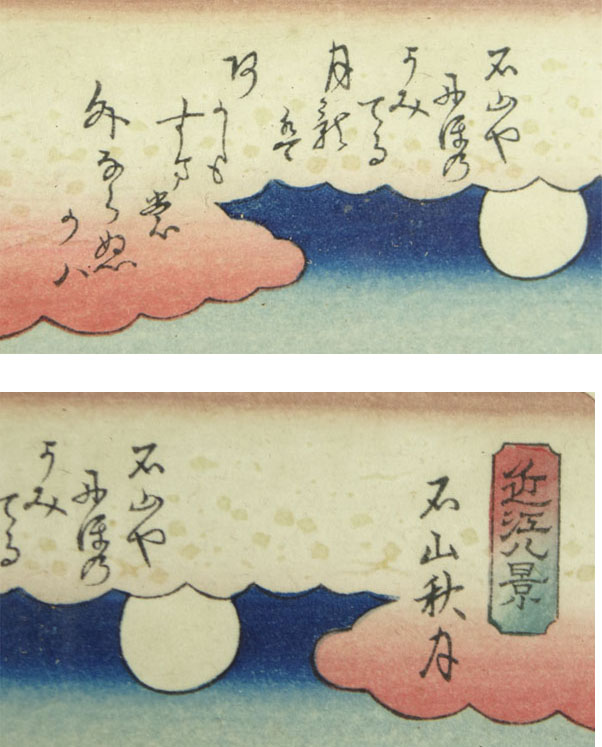 石山や
にほの
うみ
てる
月影
は
あ
かしも
すま
も
外
ならぬ
かハ
近江八景
石山秋月
石山や
にほの
うみ
てる